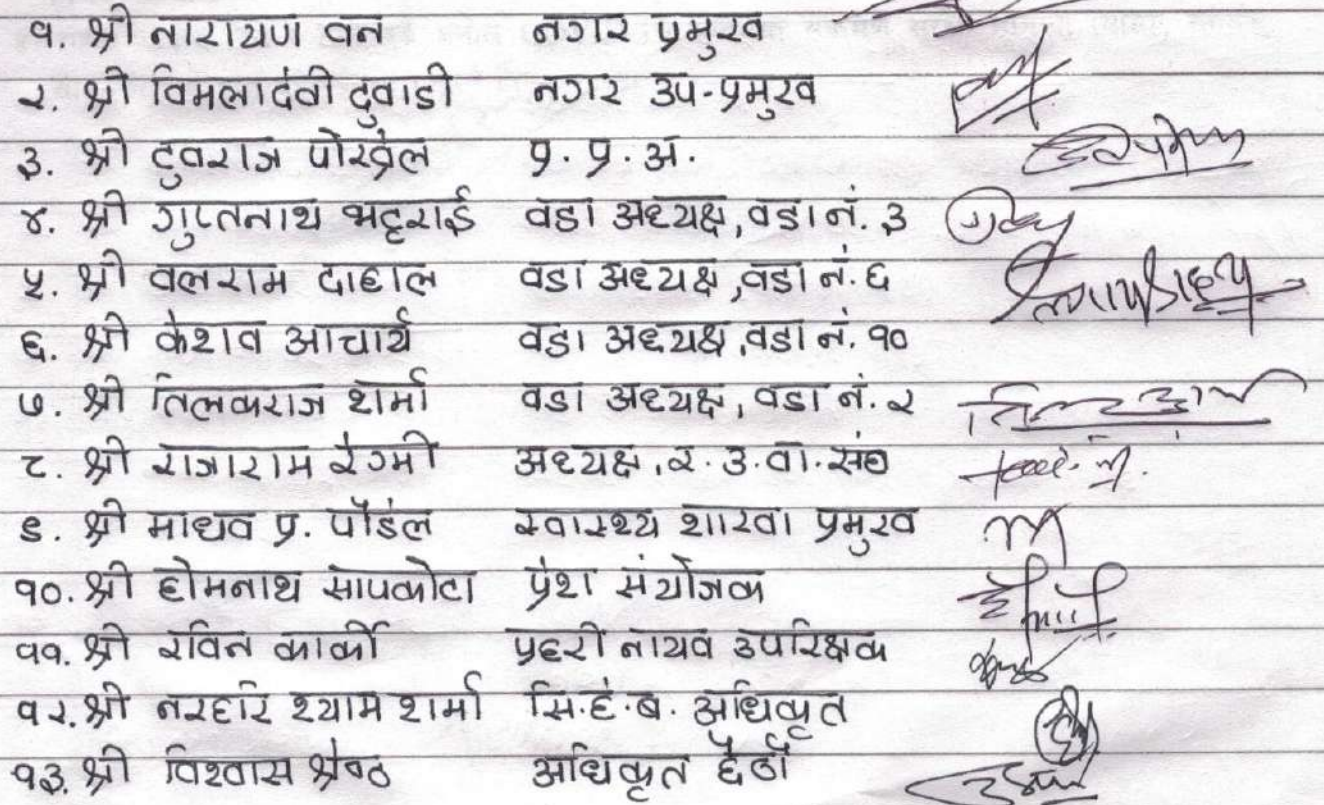 १. श्री नारायण वन नगर प्रमुख
२. श्री विमलादेवी दुवाडी नगर उप-प्रमुख
३. श्री दुवराज पोख्रेल प्र. प्र. अ.
४. श्री गुप्तनाथ भट्टराई वडा अध्यक्ष, वडा नं. ३
५. श्री वलराम दाहाल वडा अध्यक्ष, वडा नं. ६
६. श्री केशव आचार्य वडा अध्यक्ष, वडा नं. १०
७. श्री तिलकराज शर्मा वडा अध्यक्ष, वडा नं. २
८. श्री राजाराम रेग्मी अध्यक्ष, र. उ. वा. संघ
९. श्री माधव प्र. पौडेल स्वास्थ्य शाखा प्रमुख
१०. श्री होमनाथ सापकोटा प्रेश संयोजक
११. श्री रविन कार्की प्रहरी नायव उपरिक्षक
१२. श्री नरहरि श्याम शर्मा सि.ई.ब. अधिकृत
१३. श्री विश्वास श्रेष्ठ अधिकृत छैठौ